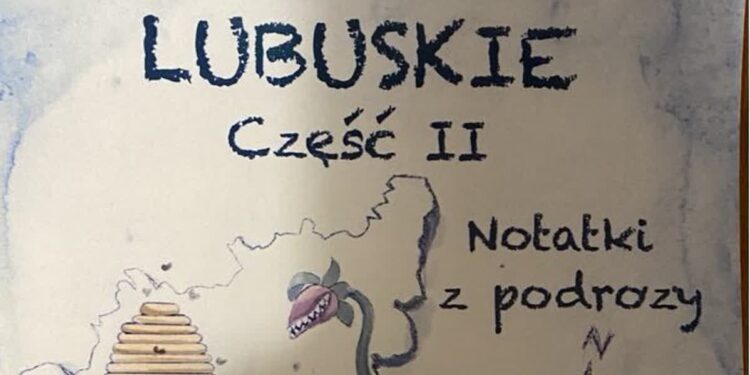 LUBUSKIE
Część II
Notatki
z podrozy
N